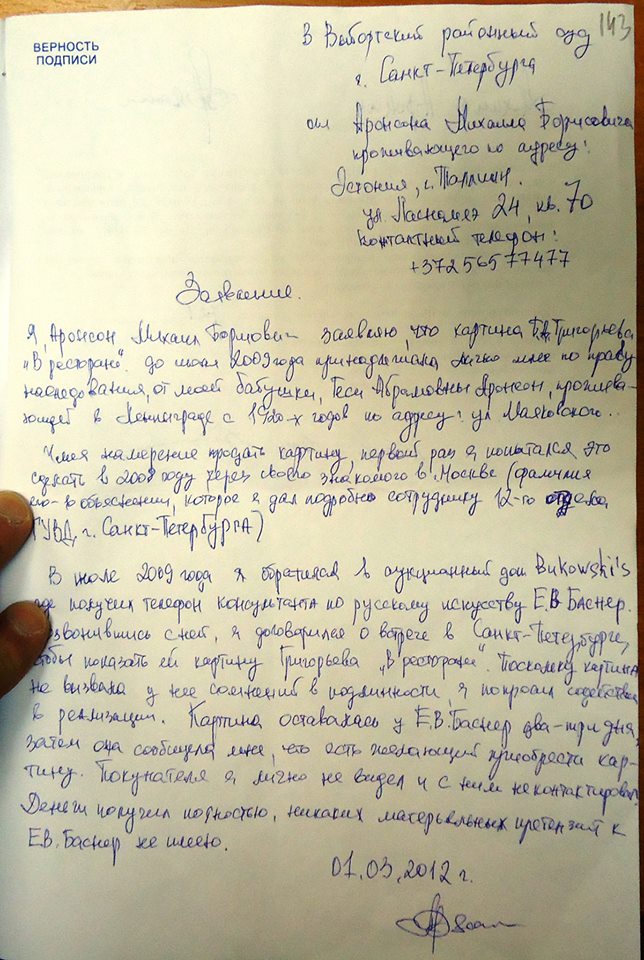 143
ВЕРНОСТЬ
ПОДПИСИ
В Выборгский районный суд
г. Санкт-Петербурга
от Аронсона Михаила Борисовича
проживающего по адресу:
Эстония, г. Таллинн.
ул. Ласнамяэ 24, кв. 70
контактный телефон:
+372 56577477
Заявление.
Я, Аронсон Михаил Борисович заявляю, что картина Б.Д. Григорьева
„В ресторане" до июля 2009 года принадлежала лично мне по праву
наследования, от моей бабушки, Геси Абрамовны Аронсон, прожива-
ющей в Ленинграде с 1920-х годов по адресу: ул Маяковского..
Имея намерение продать картину, первый раз я попытался это
сделать в 2008 году через своего знакомого в Москве (фамилия
его - в объяснении, которое я дал подробно сотруднику 12-го отдела
ГУВД г. Санкт-Петербурга)
В июле 2009 года я обратился в аукционный дом Bukowski's
где получил телефон консультанта по русскому искусству Е.В. Баснер.
созвонившись с ней, я договорился о встрече в Санкт-Петербурге,
чтобы показать ей картину Григорьева „В ресторане". Поскольку картина
не вызвала у нее сомнений в подлинности, я попросил содействия
в реализации. Картина оставалась у Е.В. Баснер два-три дня,
затем она сообщила мне, что есть желающий приобрести кар-
тину. Покупателя я лично не видел и с ним не контактировал.
Деньги получил полностью, никаких матерьяльных претензий к
Е.В. Баснер не имею.
01.03.2012 г.